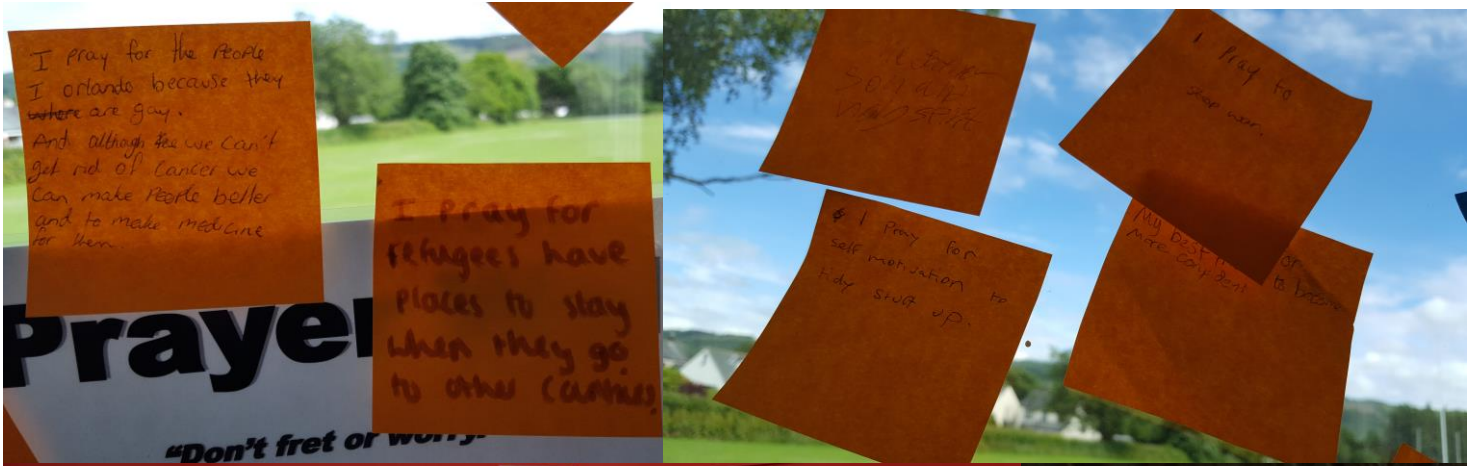 I pray for the People
I orlando because they
where are gay.
And although the we can't
get rid of Cancer we
can make People better
and to make medicine
for them.
I pray for
refugees have
places to stay
when they go
to other
Prayer
"Don't fret or worry.
I Pray to
stop war.
I Pray for
self motivation to
tidy stuff up.
My best
or
More confident
to become